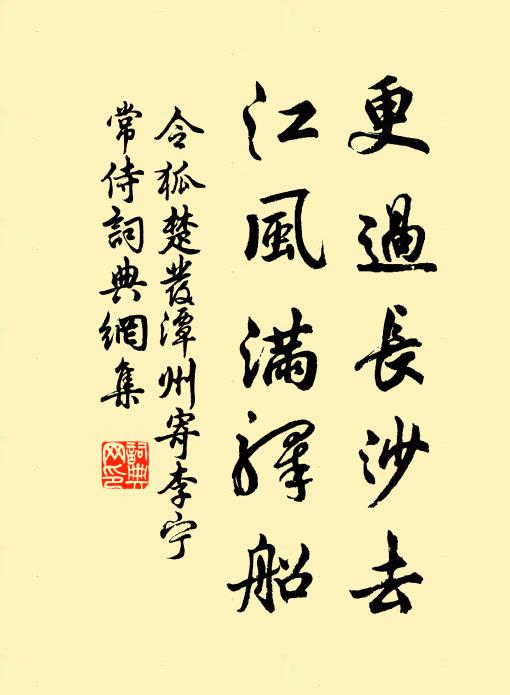 更過長沙去
江風滿驛船
令狐楚發潭州寄李宁
常侍詞典網集
詞典
网印